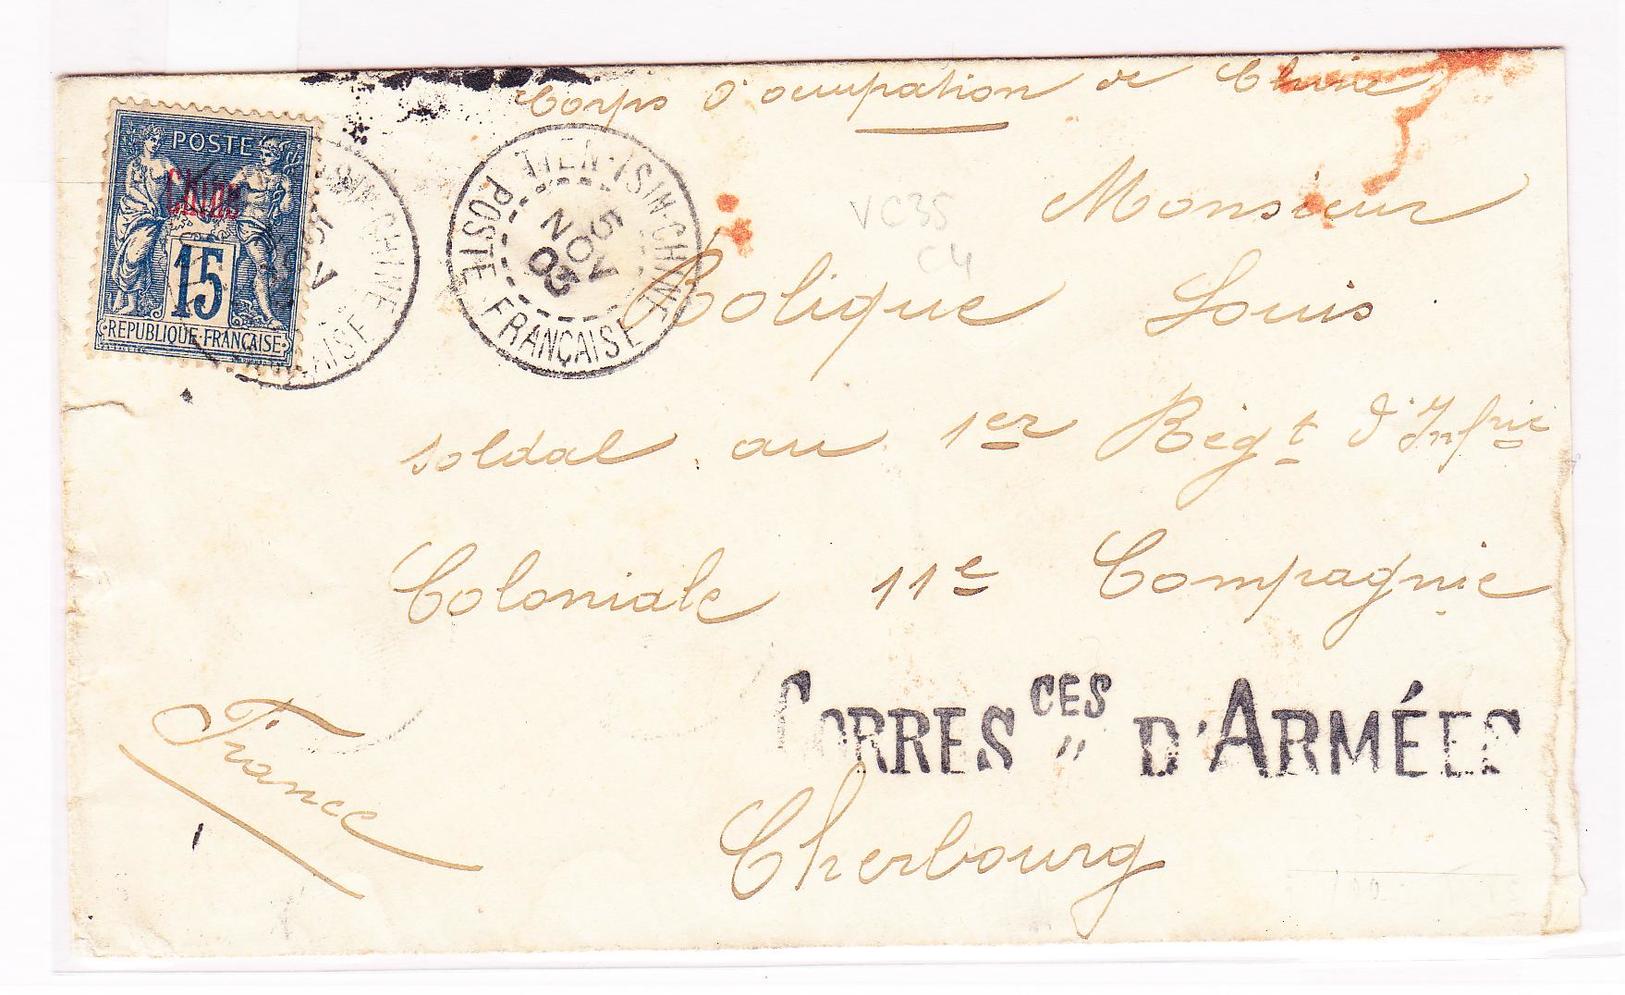 Corps d'ocupation de Chine
POSTE
Chine
15
REPUBLIQUE FRANÇAISE
TIEN-TSIN-CHINE
5
NOV
03
POSTE FRANÇAISE
VC35
C4
Monsieur
Rolique Louis
soldat au 1er Régt d'Infrie
Coloniale 11e Compagnie
CORRES CES D'ARMÉES
France
Cherbourg